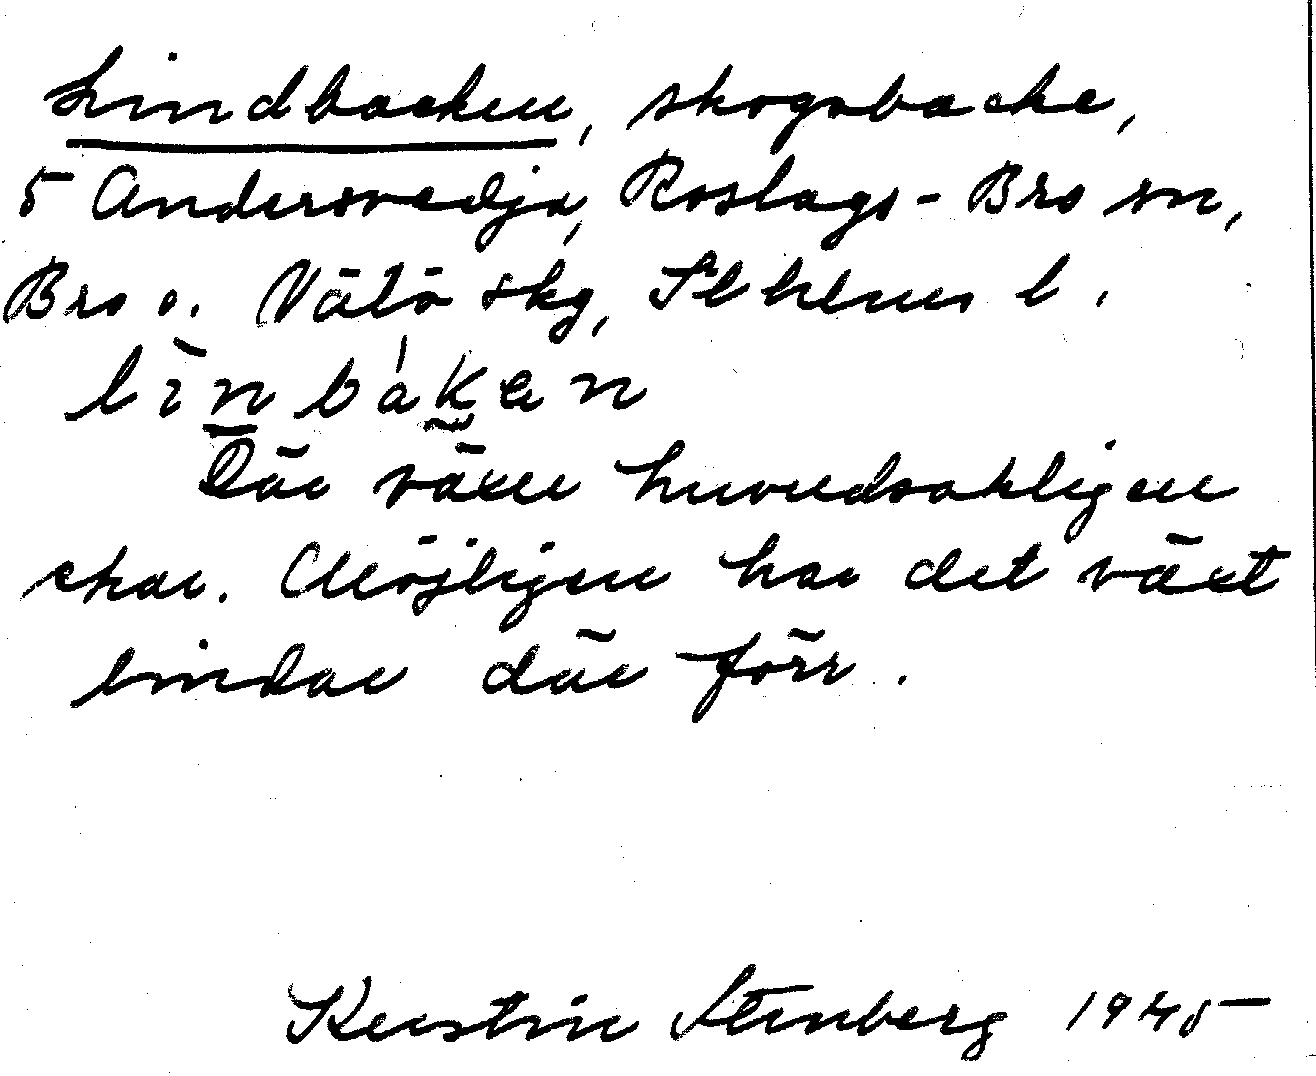 Lindbacken, skogsbacke,
5 Andersvedja, Roslags-Bro sn,
Bro o. Vätö skg, Sthlms l.
lìnbákan
Där växer huvudsakligen
ekar. Möjligen har det växt
lindar där förr.
Kerstin Stenberg 1945